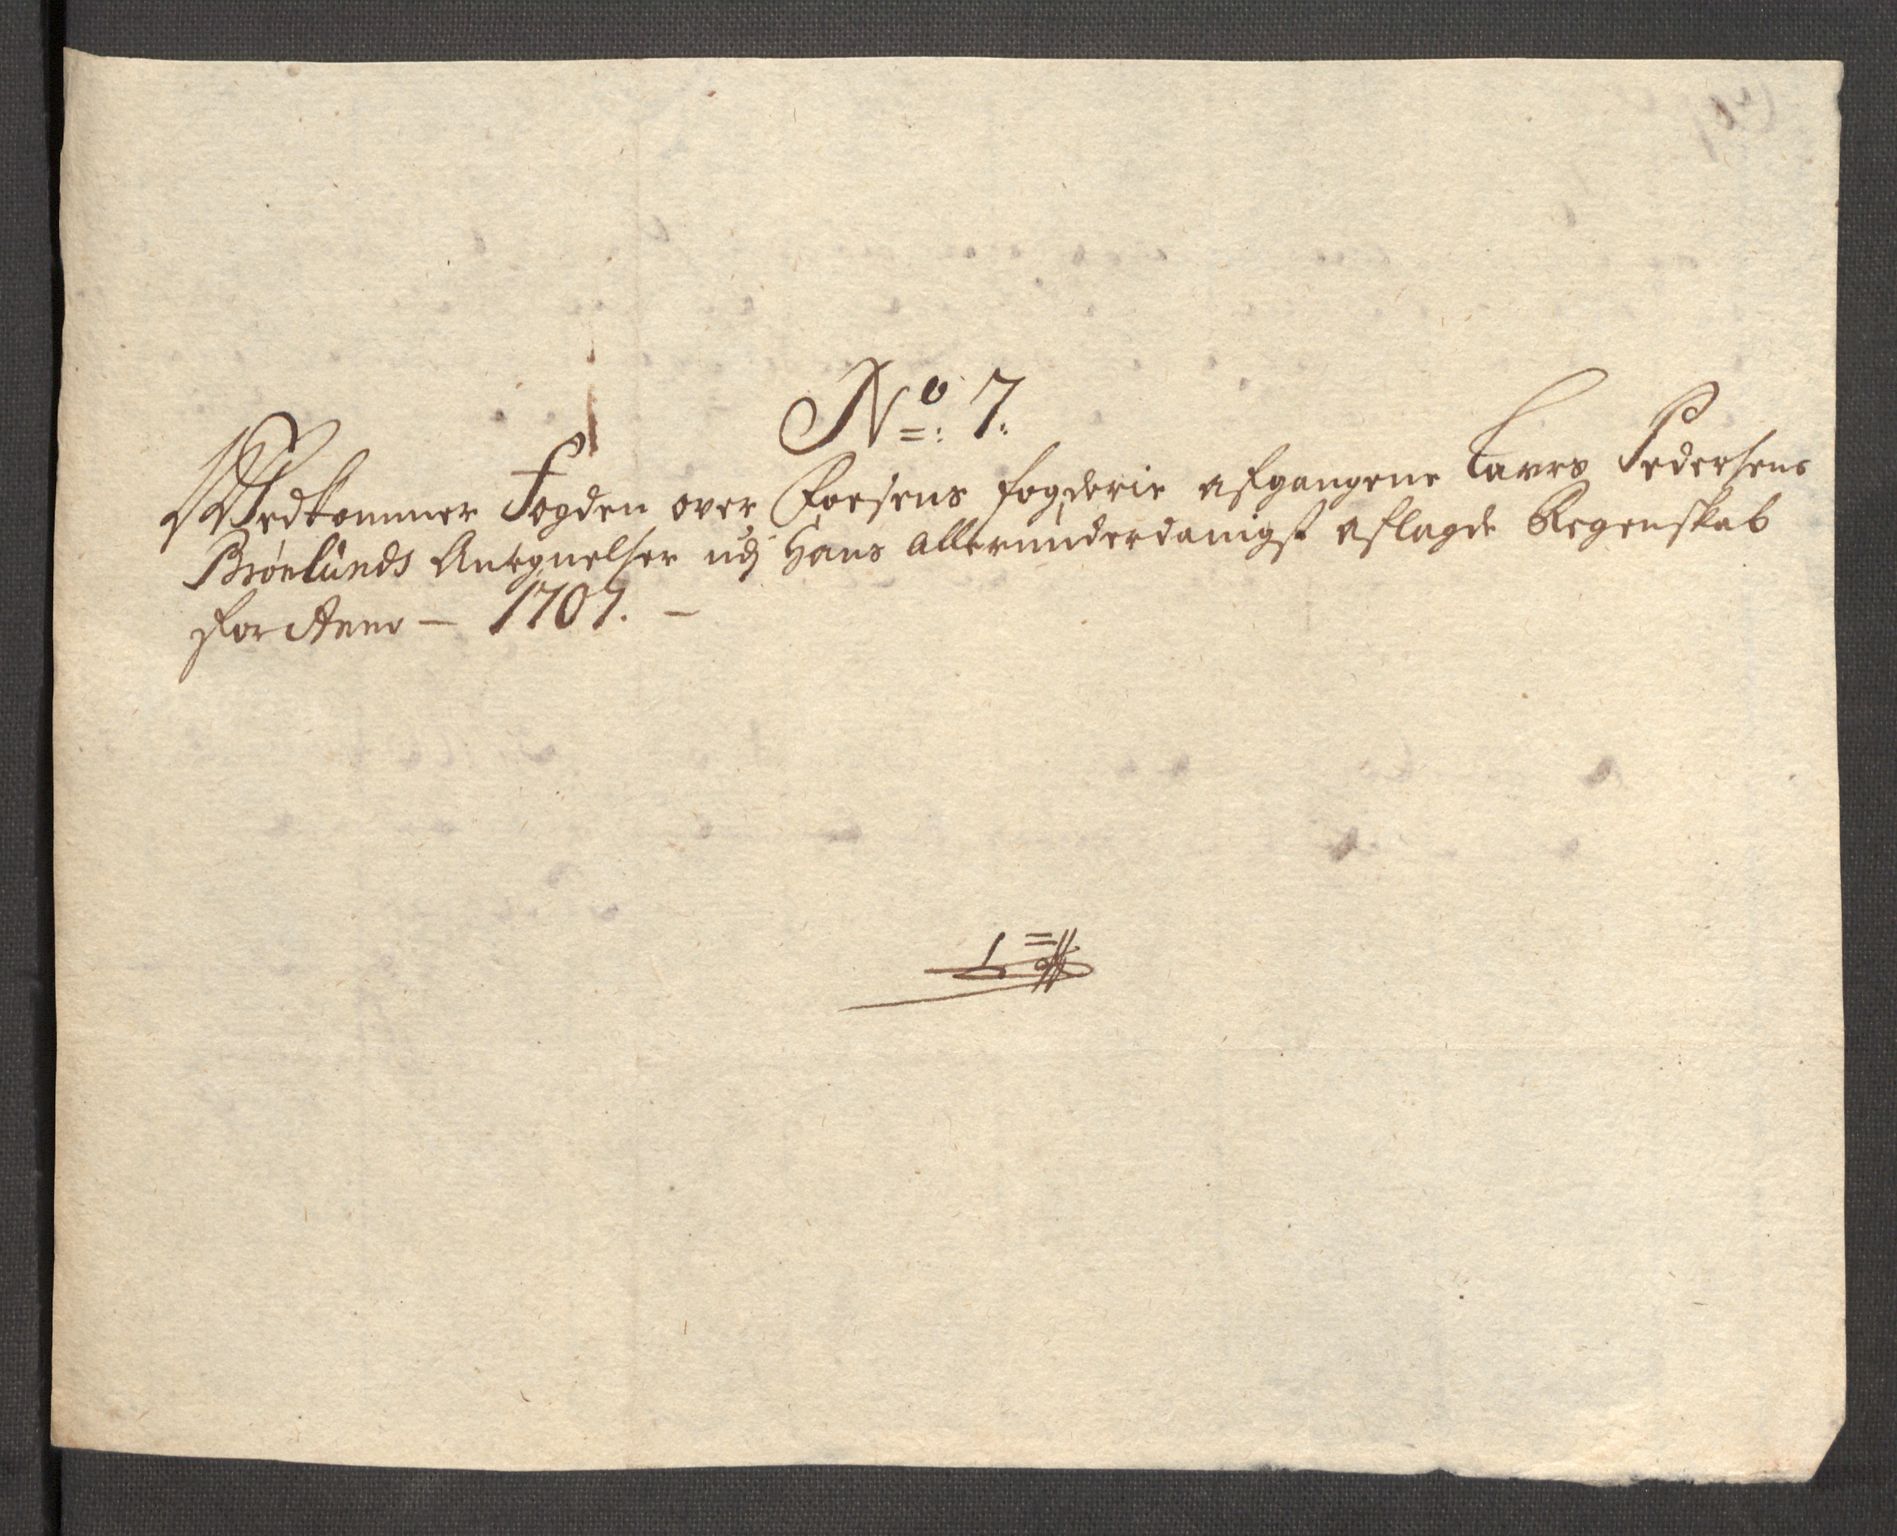 No: 7.
Vedkommer Fogden over Foesens fogderie afgangene Laurs Pedersens
Brønlunds Antegnelser udj Hans allerunderdanigst aflagde Regenskab
for Anno – 1707. –